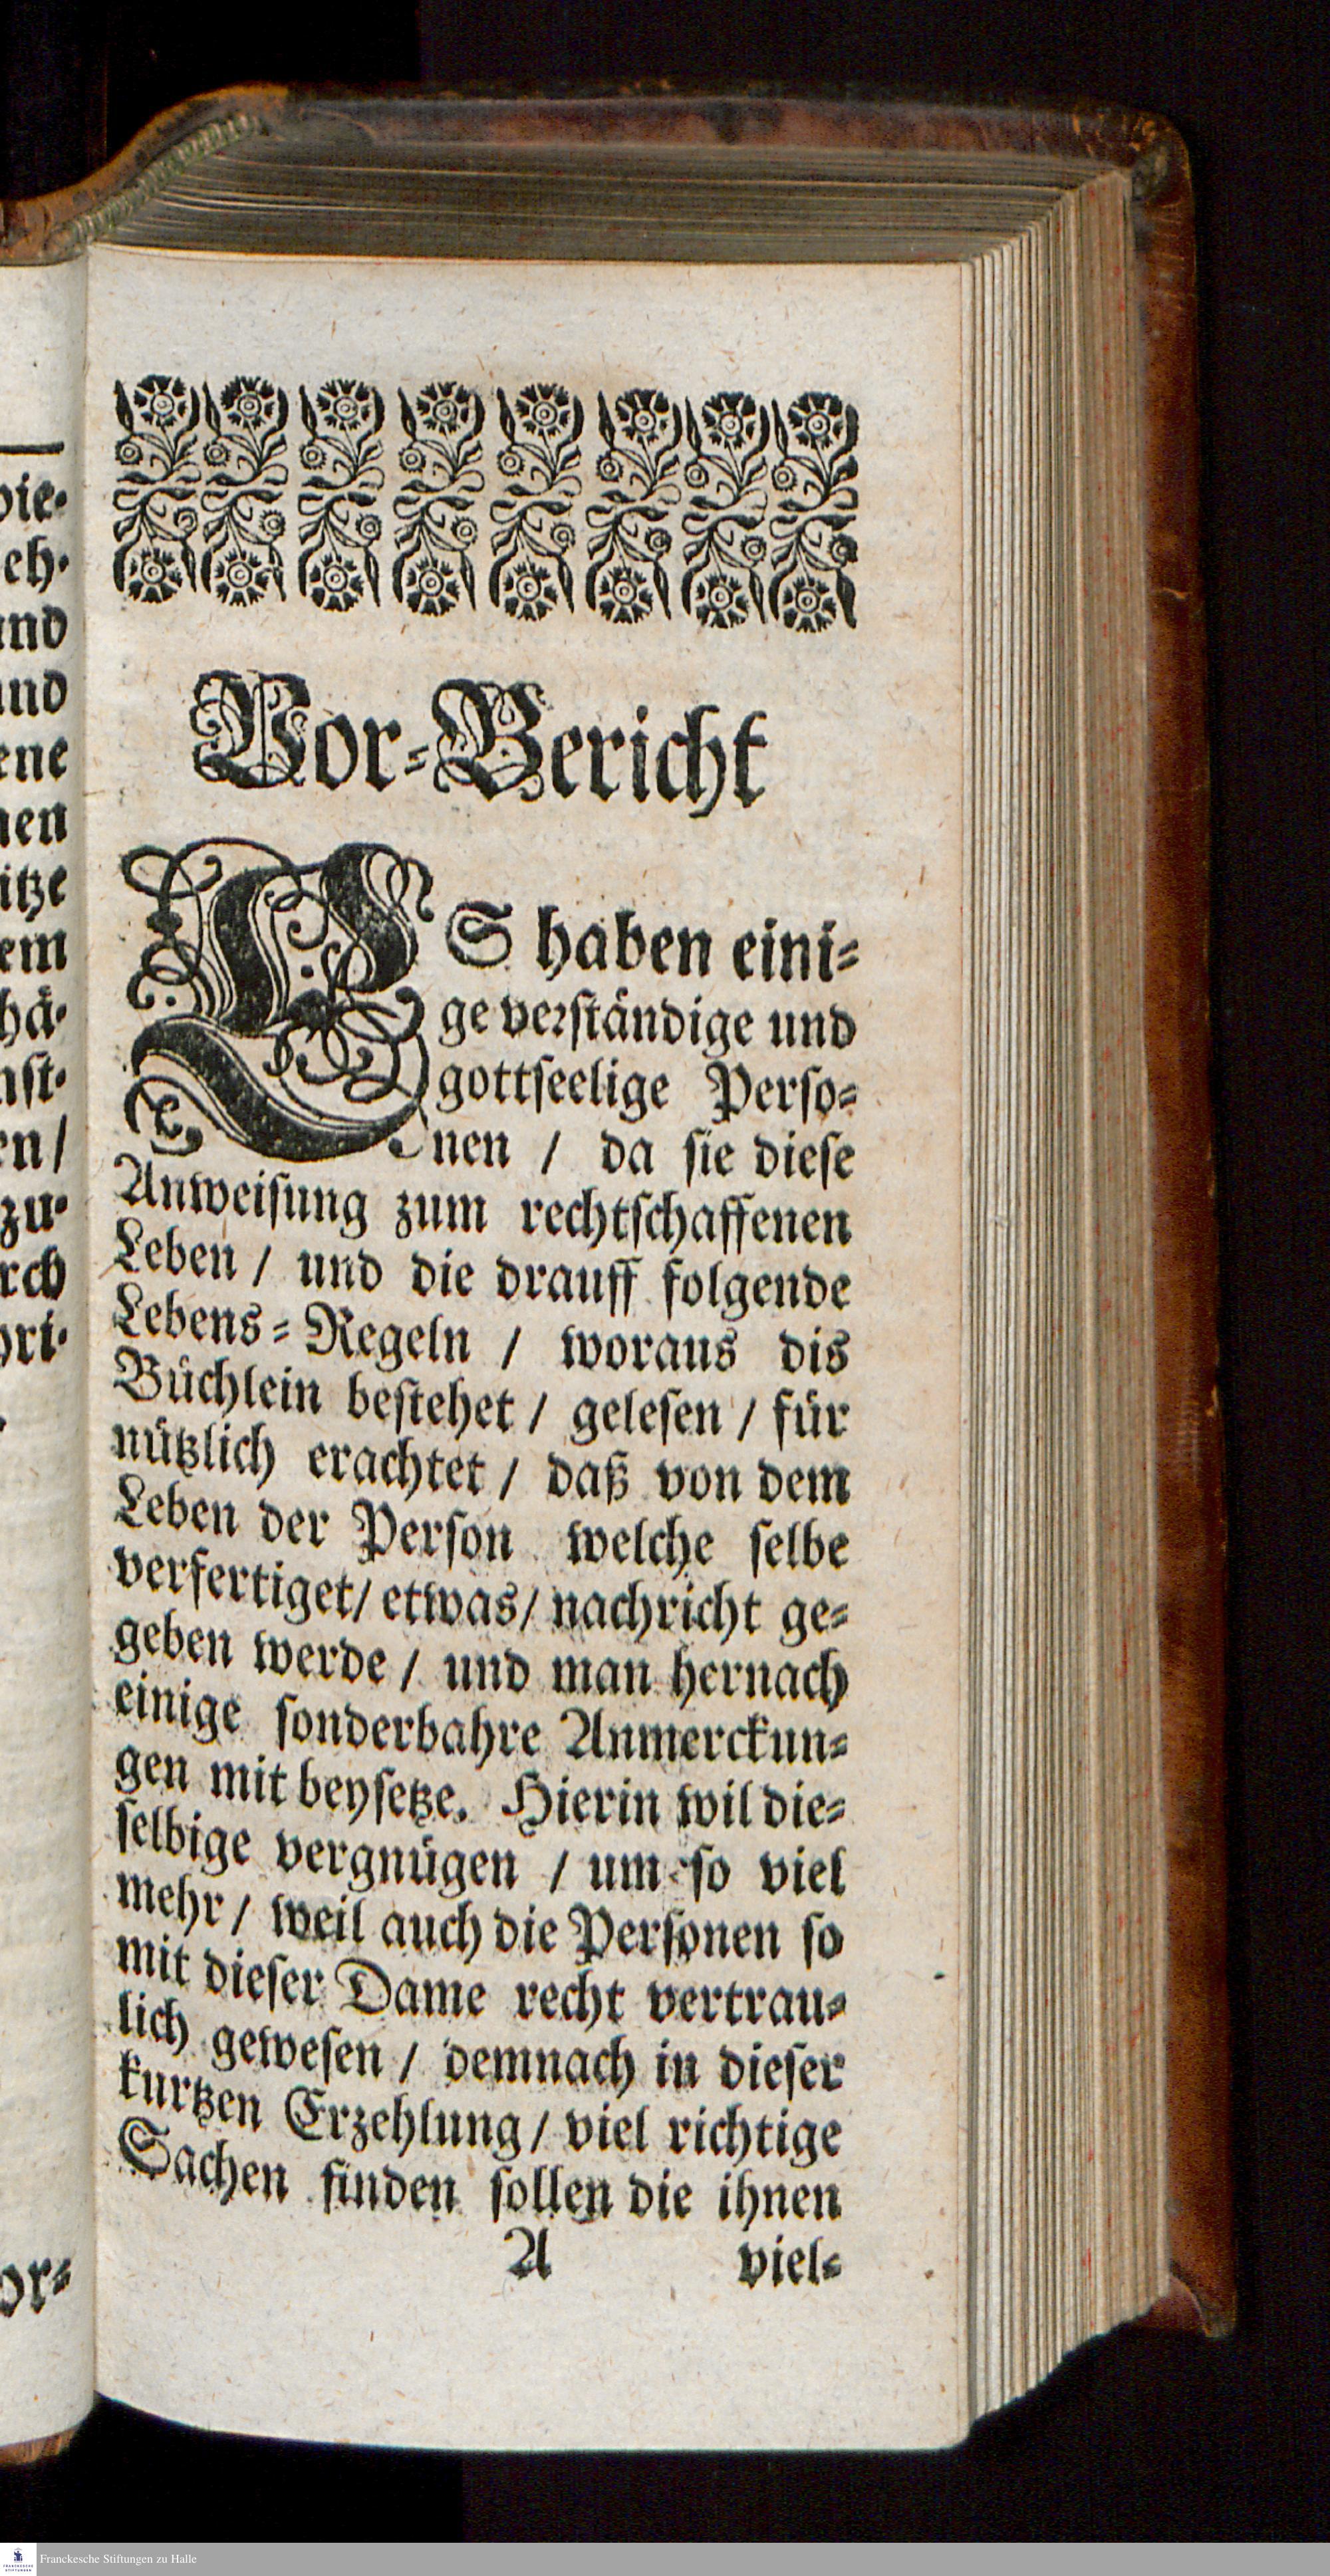 Vor-Bericht
ES haben eini-
ge verständige und
gottseelige Perso-
nen / da sie diese
Anweisung zum rechtschaffenen
Leben / und die drauff folgende
Lebens-Regeln / woraus dis
Büchlein bestehet / gelesen / für
nützlich erachtet / daß von dem
Leben der Person welche selbe
verfertiget / etwas / nachricht ge-
geben werde / und man hernach
einige sonderbahre Anmerckun-
gen mit beysetze. Hierin wil die-
selbige vergnügen / um so viel
mehr / weil auch die Personen so
mit dieser Dame recht vertrau-
lich gewesen / demnach in dieser
kurtzen Erzehlung / viel richtige
Sachen finden sollen die ihnen
A viel-
Franckesche Stiftungen zu Halle